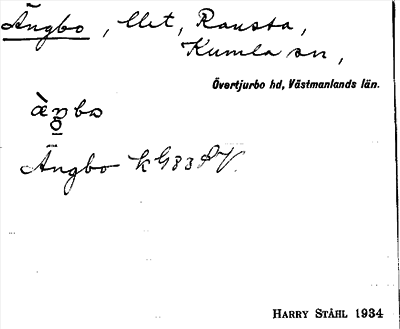 Ängbo, llet, Ransta,
Kumla sn,
Övertjurbo hd, Västmanlands län.
Ängbo
HARRY STÅHL 1934